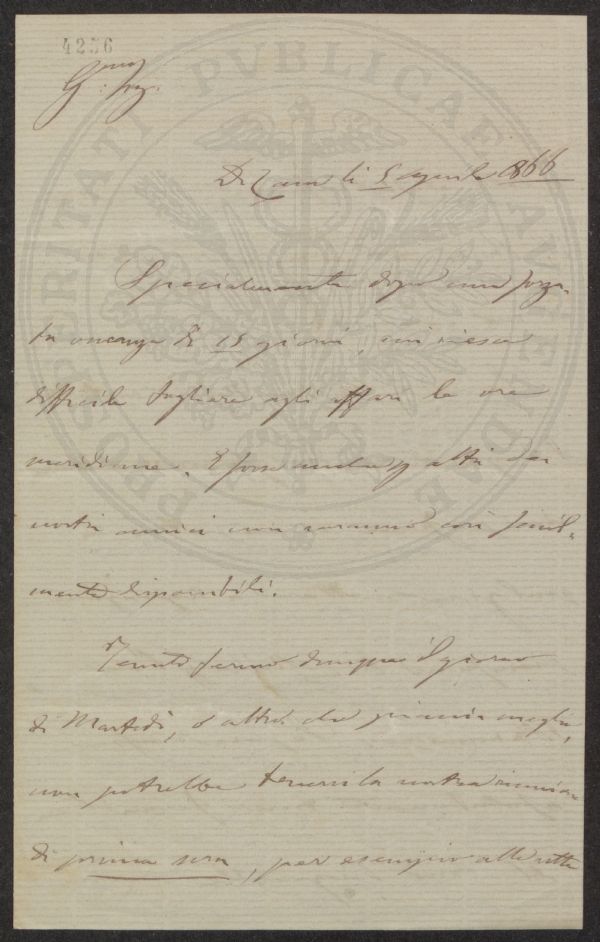 4256
PROSPERITATI PVBLICAE AVGENDAE
Di Casa li 5 aprile 1866
Specialmente dopo una forza-
ta assenza di 15 giorni, mi riesce
difficile togliere agli affari le ore
meridiane. E forse anche altri dei
nostri amici non saranno così facil-
mente disponibili.
Tenuto fermo dunque il giorno
di Martedì, o altro che piaccia meglio,
non potrebbe tenersi la nostra riunione
di prima sera, per esempio alle sette